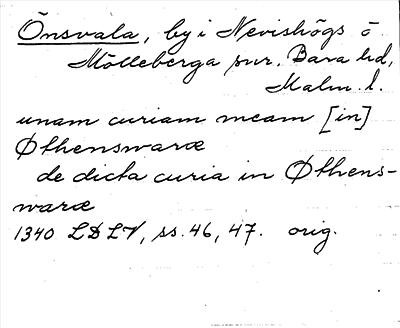 Önsvala, by i Nevishögs o
Mölleberga snr. Bara hd,
Malm. l.
unam curiam meam [in]
Øthenswaræ
de dicta curia in Øthens-
waræ
1340 LDLV, ss. 46, 47. orig.